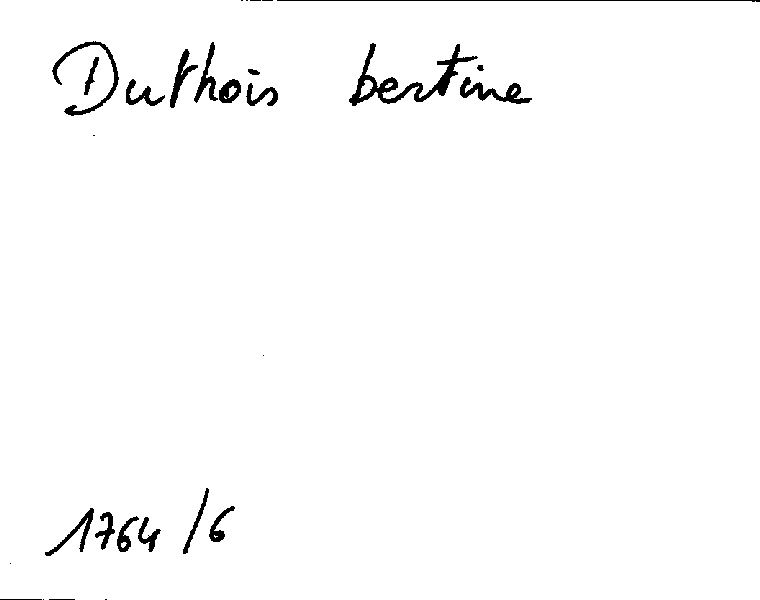 Duthois bertine
1764/6